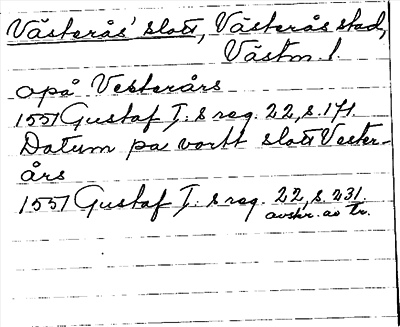 Västerås' slott, Västerås stad,
Västm. l.
opå Vesterårs
1551 Gustaf I:s reg. 22, s. 171.
Datum på vortt slott Vester-
års
1551 Gustaf I:s reg. 22, s. 231.
avskr. av tr.